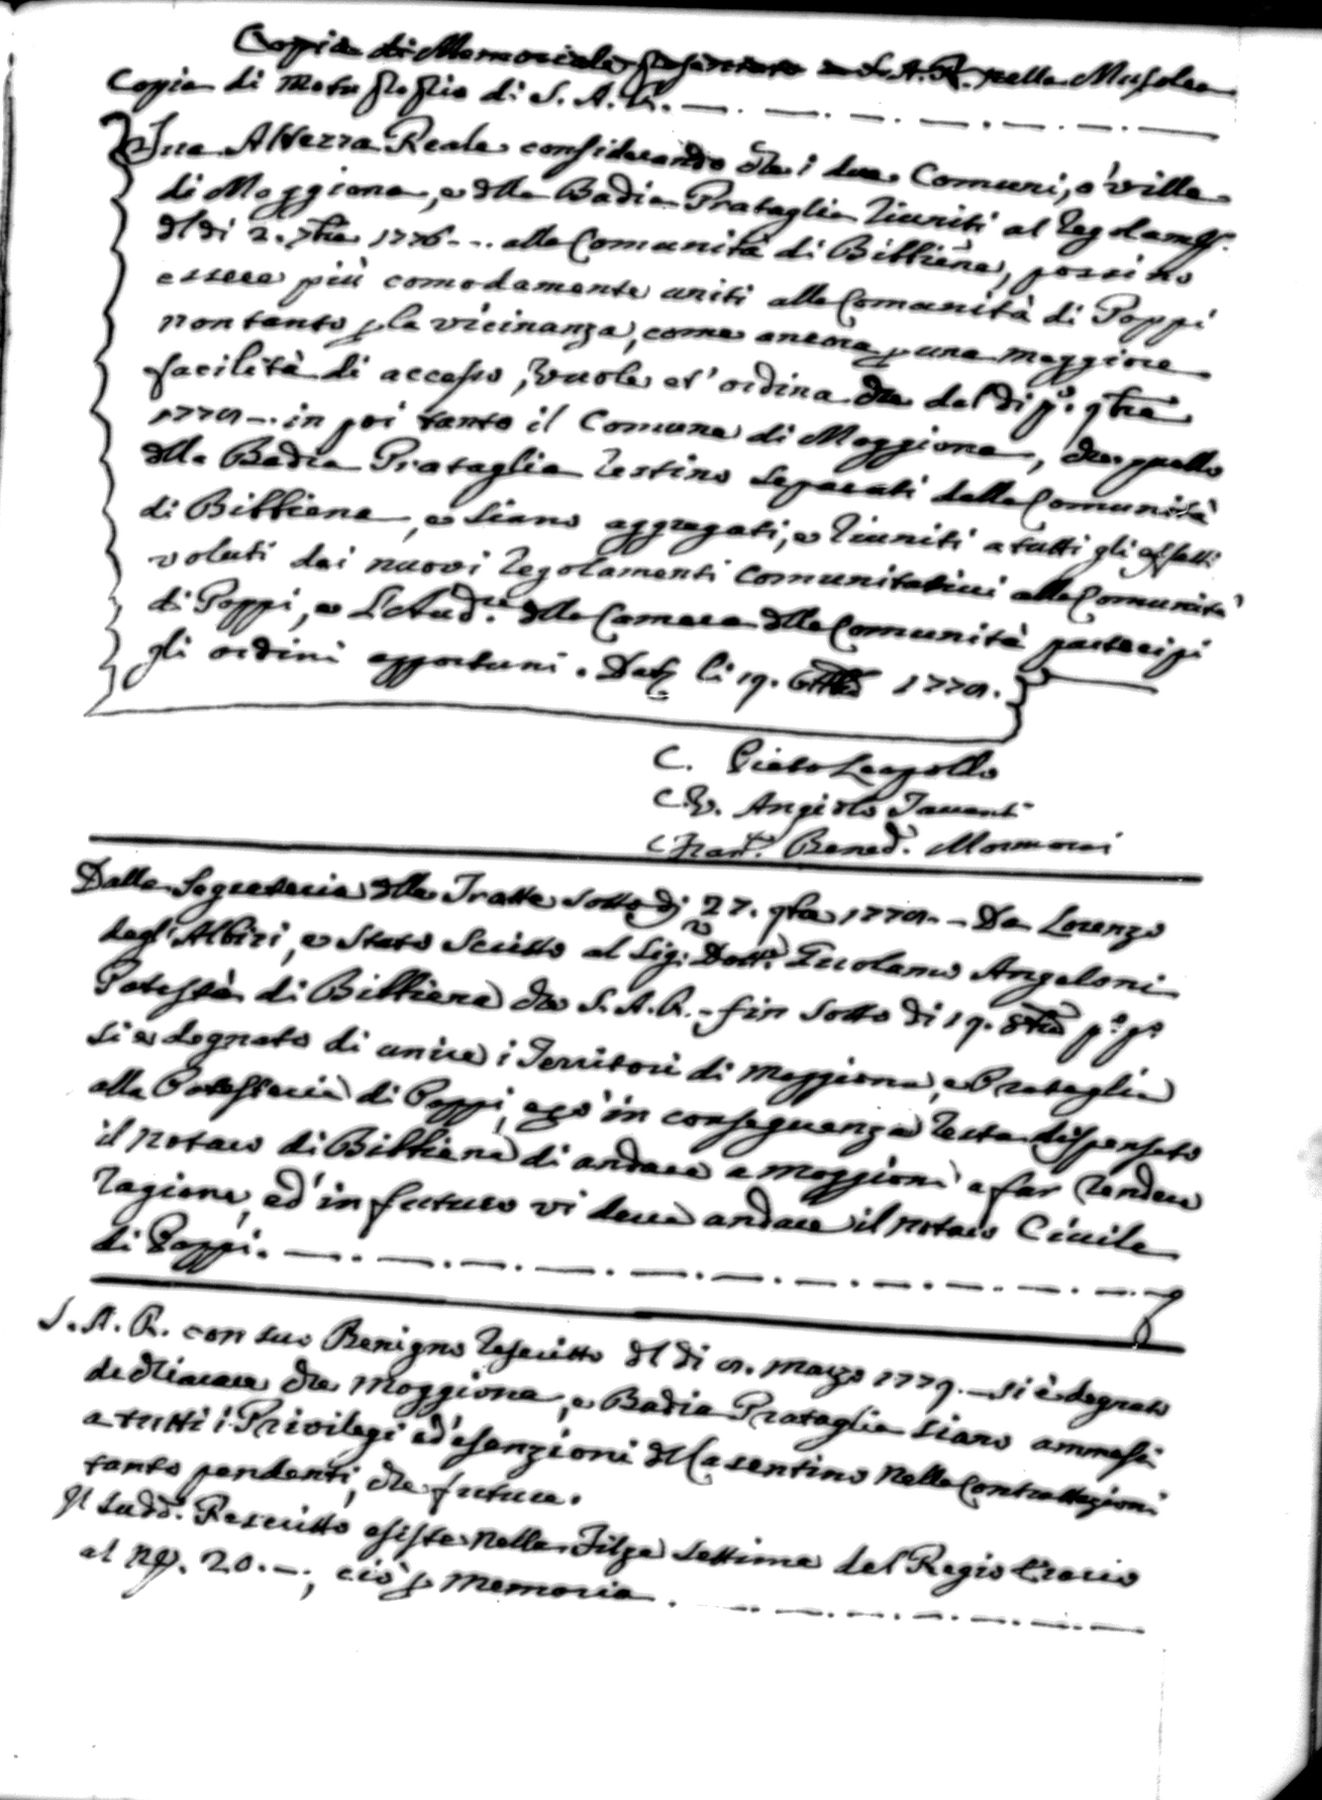 Copia di Memoriale presentato a S. A. R. nella
Copia di Motu proprio di S. A. R.
Sua Altezza Reale considerando che i due Comuni, o' ville
di Moggiona, e della Badia Prataglia riuniti al regolam.
del dì 2. 7bre 1776 alla Comunità di Bibbiena, possino
essere più comodamente uniti alla Comunità di Poppi
non tanto p. la vicinanza, come ancora p. una maggiore
facilità di accesso, vuole et' ordina che dal dì p.º 9bre
1778 in poi tanto il Comune di Moggiona, che quello
della Badia Prataglia restino separati dalla Comunità
di Bibbiena, e siano aggregati, e riuniti a tutti gli effetti
voluti dai nuovi regolamenti Comunitativi alla Comunità
di Poppi, e L'Aud.re della Camera delle Comunità partecipi
gli ordini opportuni. Dat. li 19. 1778.
C. Pietro Leopoldo
C. V. Angiolo Tavanti
C Fran.co Bened. Mormorai
Dalla Segreteria delle Tratte sotto dì 27. 9bre 1778. Da Lorenzo
degli Albizi, e stato scritto al Sig. Dott.e Girolamo Angeloni
Potestà di Bibbiena che S. A. R. fin sotto dì 19. 8bre p.º p.º
si è degnato di unire i Territori di Moggiona, e Prataglia
alla Potesteria di Poppi, e p.ò in conseguenza resta dispensato
il notaro di Bibbiena di andare a Moggioni a far rendere
ragione, ed' in futuro vi deve andare il notaro Civile
di Poppi.
S. A. R. con suo Benigno rescritto del dì 8. Marzo 1779. si è degnato
dichiarare che Moggiona, e Badia Prataglia siano ammessi
a tutti i Privilegi ed' esenzioni del Casentino nelle Contrattazioni
tanto pendenti, che future.
Il sudd. Rescritto esiste nella Filza settima del Regio
al N. 20. ; ciò p. memoria